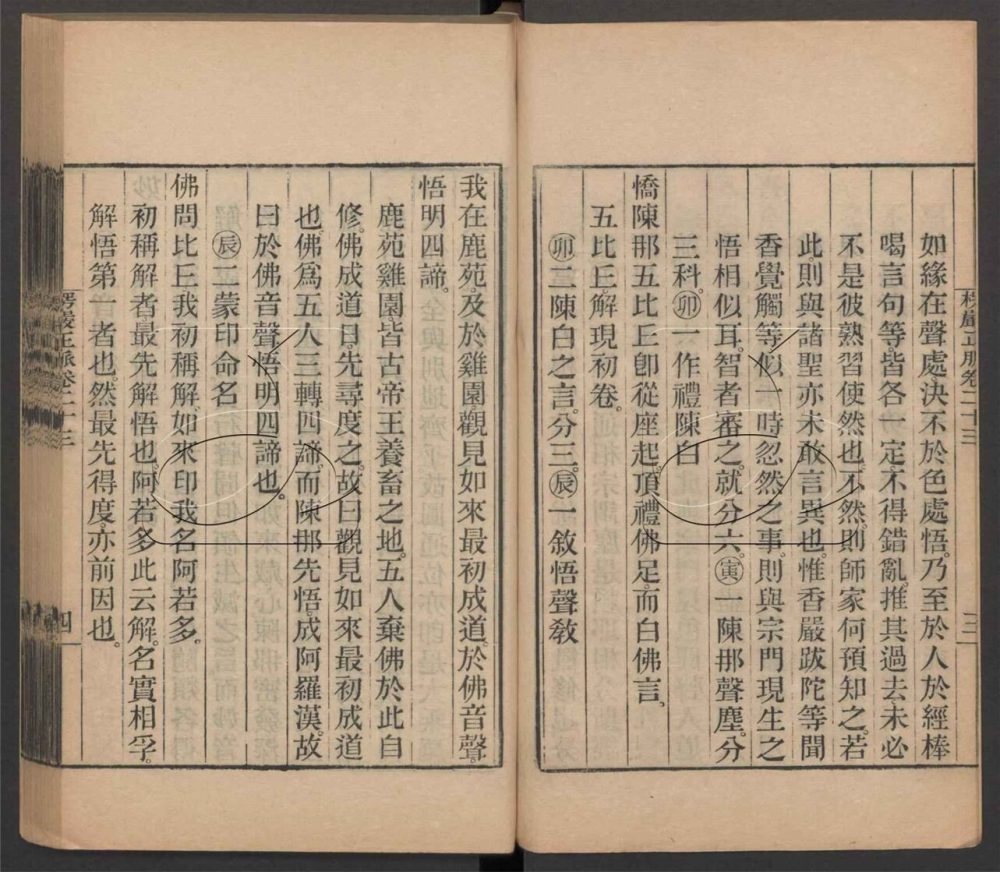 楞嚴正脉卷二十三
三
如緣在聲處決不於色處悟乃至於人於經棒
喝言句等皆各定不得錯亂推其過去未必
不是彼熟習使然也不然則師家何預知之若
此則與諸聖亦未敢言異也惟香嚴跋陀等聞
香覺觸等似時忽然之事則與宗門現生之
悟相似耳智者審之就分六㊞寅一陳那聲塵分
三科卯一作禮陳白
憍陳那五比丘卽從座起頂禮佛足而白佛言
五比丘解現初卷
卯二陳白之言分三辰一敘悟聲敎
我在鹿苑及於雞園觀見如來最初成道於佛音聲
悟明四諦
鹿苑雞園皆古帝王養畜之地五人棄佛於此自
修佛成道日先尋度之故曰觀見如來最初成道
也佛爲五人三轉四諦而陳那先悟成阿羅漢故
曰於佛音聲悟明四諦也
辰二蒙印命名
佛問比丘我初稱解如來印我名阿若多
初稱解者最先解悟也阿若多此云解名實相孚
解悟第一者也然最先得度亦前因也
楞嚴正脉卷二十三
四